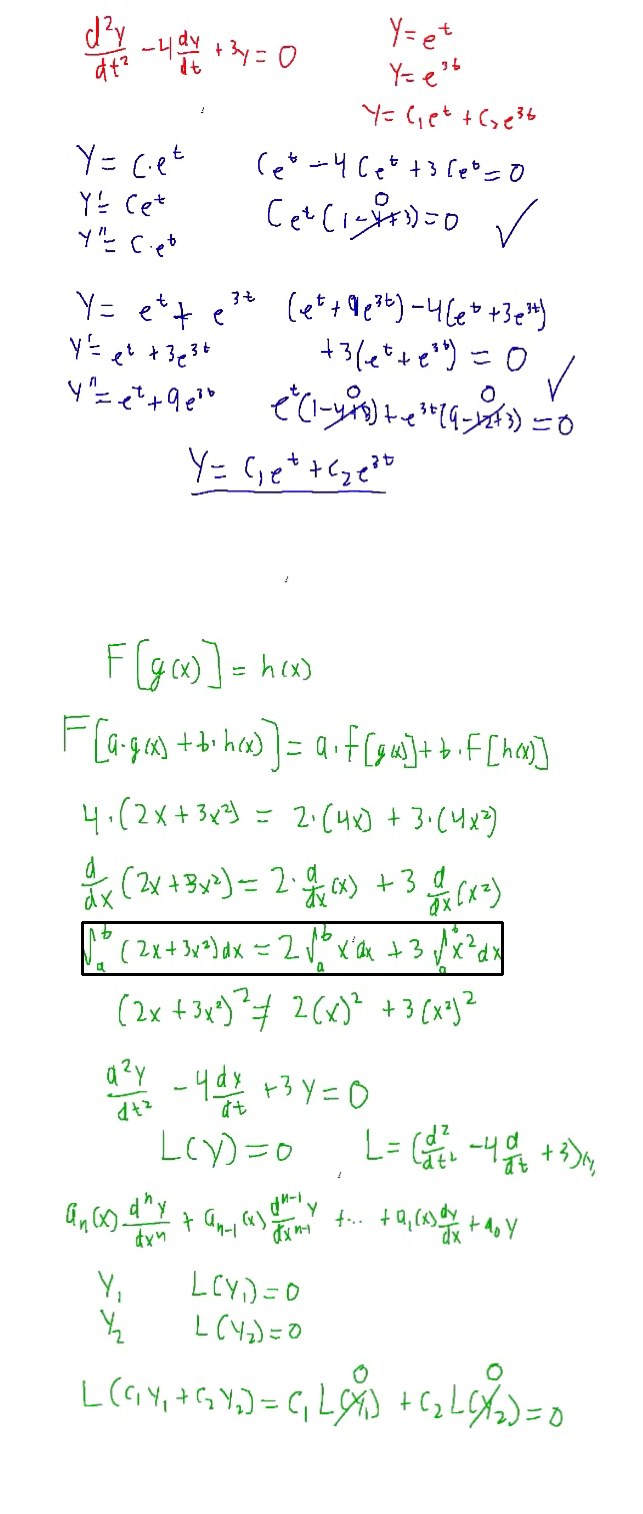 d²y/dt² - 4 dy/dt + 3y = 0
y = e^t
y = e^{3t}
y = c₁e^t + c₂e^{3t}
y = c·e^t
y' = ce^t
y'' = c·e^t
ce^t - 4ce^t + 3ce^t = 0
ce^t(1-4+3) = 0 ✓
0
y = e^t + e^{3t}
y' = e^t + 3e^{3t}
y'' = e^t + 9e^{3t}
(e^t + 9e^{3t}) - 4(e^t + 3e^{3t})
+3(e^t + e^{3t}) = 0 ✓
0 0
e^t(1-4+3) + e^{3t}(9-12+3) = 0
y = c₁e^t + c₂e^{3t}
F[g(x)] = h(x)
F[a·g(x) + b·h(x)] = a·f[g(x)] + b·F[h(x)]
4·(2x + 3x²) = 2·(4x) + 3·(4x²)
d/dx (2x + 3x²) = 2·d/dx (x) + 3 d/dx (x²)
∫_a^b (2x + 3x²)dx = 2∫_a^b x dx + 3∫_a^b x² dx
(2x + 3x²)² ≠ 2(x)² + 3(x²)²
d²y/dt² - 4 dy/dt + 3y = 0
L(y) = 0
L = (d²/dt² - 4 d/dt + 3)
a_n(x) d^n y/dx^n + a_{n-1}(x) d^{n-1}y/dx^{n-1} + ... + a₁(x) dy/dx + a₀y
y₁ L(y₁) = 0
y₂ L(y₂) = 0
0 0
L(c₁y₁ + c₂y₂) = c₁L(y₁) + c₂L(y₂) = 0